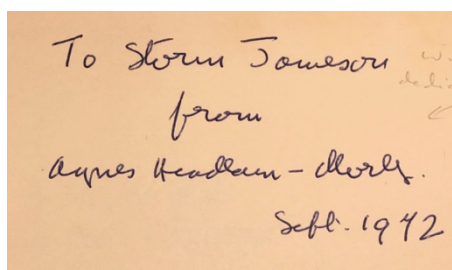 To Storm Jameson
from
Agnes Headlam-Morley.
Sept. 1942